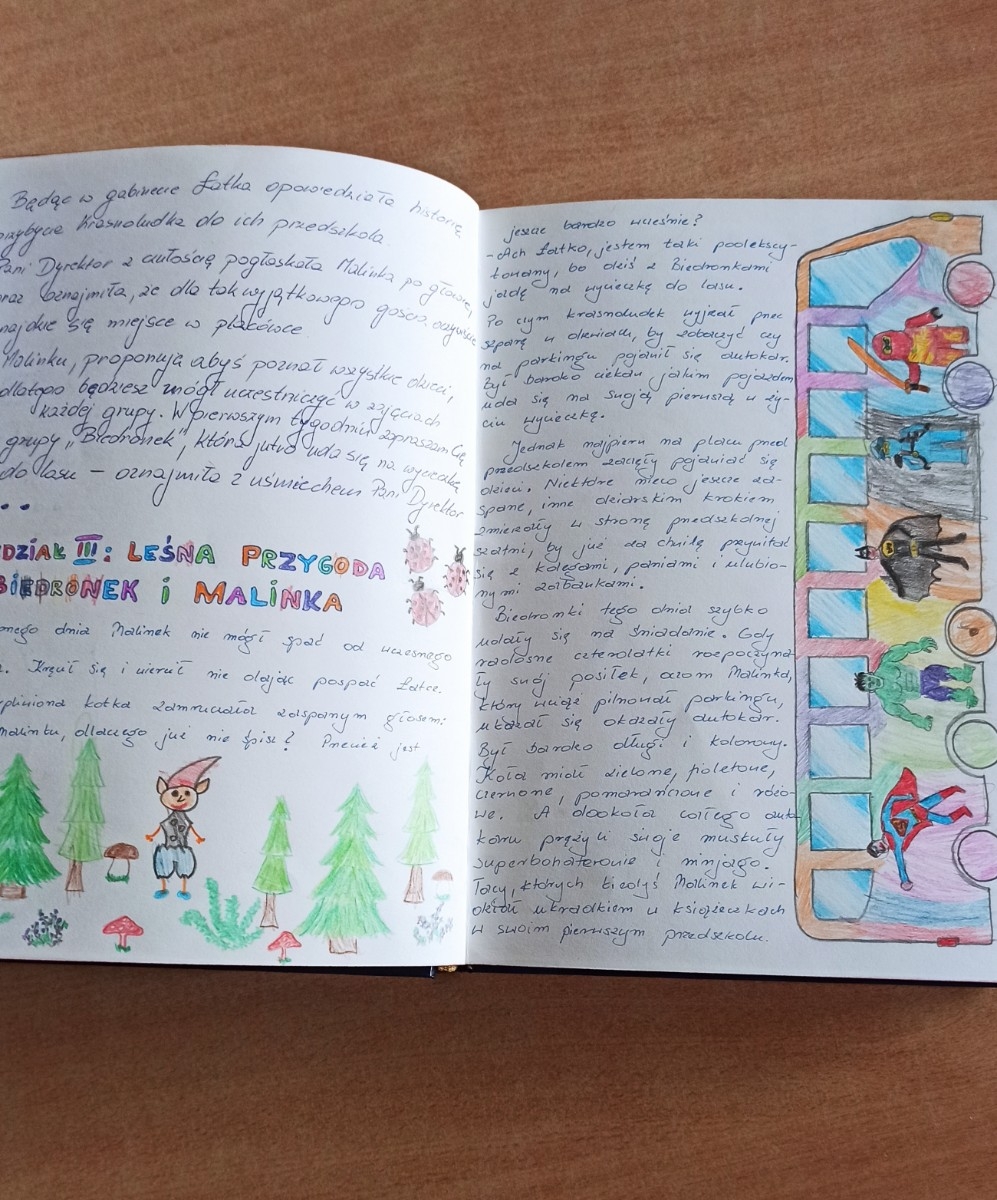 Będąc w gabinecie Łatka opowiedziała historię
przybycia Krasnoludka do ich przedszkola.
Pani Dyrektor z czułością pogłaskała Malinka po głowie,
oraz oznajmiła, że dla tak wyjątkowego gościa, oczywiście
znajdzie się miejsce w placówce.
Malinku, proponuję abyś poznał wszystkie dzieci,
dlatego będziesz mógł uczestniczyć w zajęciach
każdej grupy. W pierwszym tygodniu zapraszam Cię
grupy „Biedronek", która jutro uda się na wycieczkę
do lasu – oznajmiła z uśmiechem Pani Dyrektor
ZDZIAŁ III: LEŚNA PRZYGODA
BIEDRONEK i MALINKA
dnia Malinek nie mógł spać od wczesnego
Kręcił się i wiercił nie dając pospać Łatce.
kotka zamruczała zaspanym głosem:
Malinku, dlaczego już nie śpisz? Przecież jest
jeszcze bardzo wcześnie?
- Ach Łatko, jestem taki podekscy-
towany, bo dziś z Biedronkami
jadę na wycieczkę do lasu.
Po czym krasnoludek wyjrzał przez
szparę w drzwiach, by zobaczyć czy
na parkingu pojawił się autokar.
Był bardzo ciekaw jakim pojazdem
uda się na swoją pierwszą w ży-
ciu wycieczkę.
Jednak najpierw na placu przed
przedszkolem zaczęły pojawiać się
dzieci. Niektóre nieco jeszcze za-
spane, inne dziarskim krokiem
zmierzały w stronę przedszkolnej
szatni, by już za chwilę przywitać
się z kolegami, paniami i ulubio-
nymi zabawkami.
Biedronki tego dnia szybko
udały się na śniadanie. Gdy
radosne czterolatki rozpoczyna-
ły swój posiłek, oczom Malinka,
który wciąż pilnował parkingu,
ukazał się okazały autokar.
Był bardzo długi i kolorowy.
Koła miał zielone, fioletowe,
czerwone, pomarańczowe i różo-
we. A dookoła całego auto-
karu prężyli swoje muskuły
superbohaterowie i ninjago.
Tacy, których kiedyś Malinek wi-
dział ukradkiem w książeczkach
w swoim pierwszym przedszkolu.